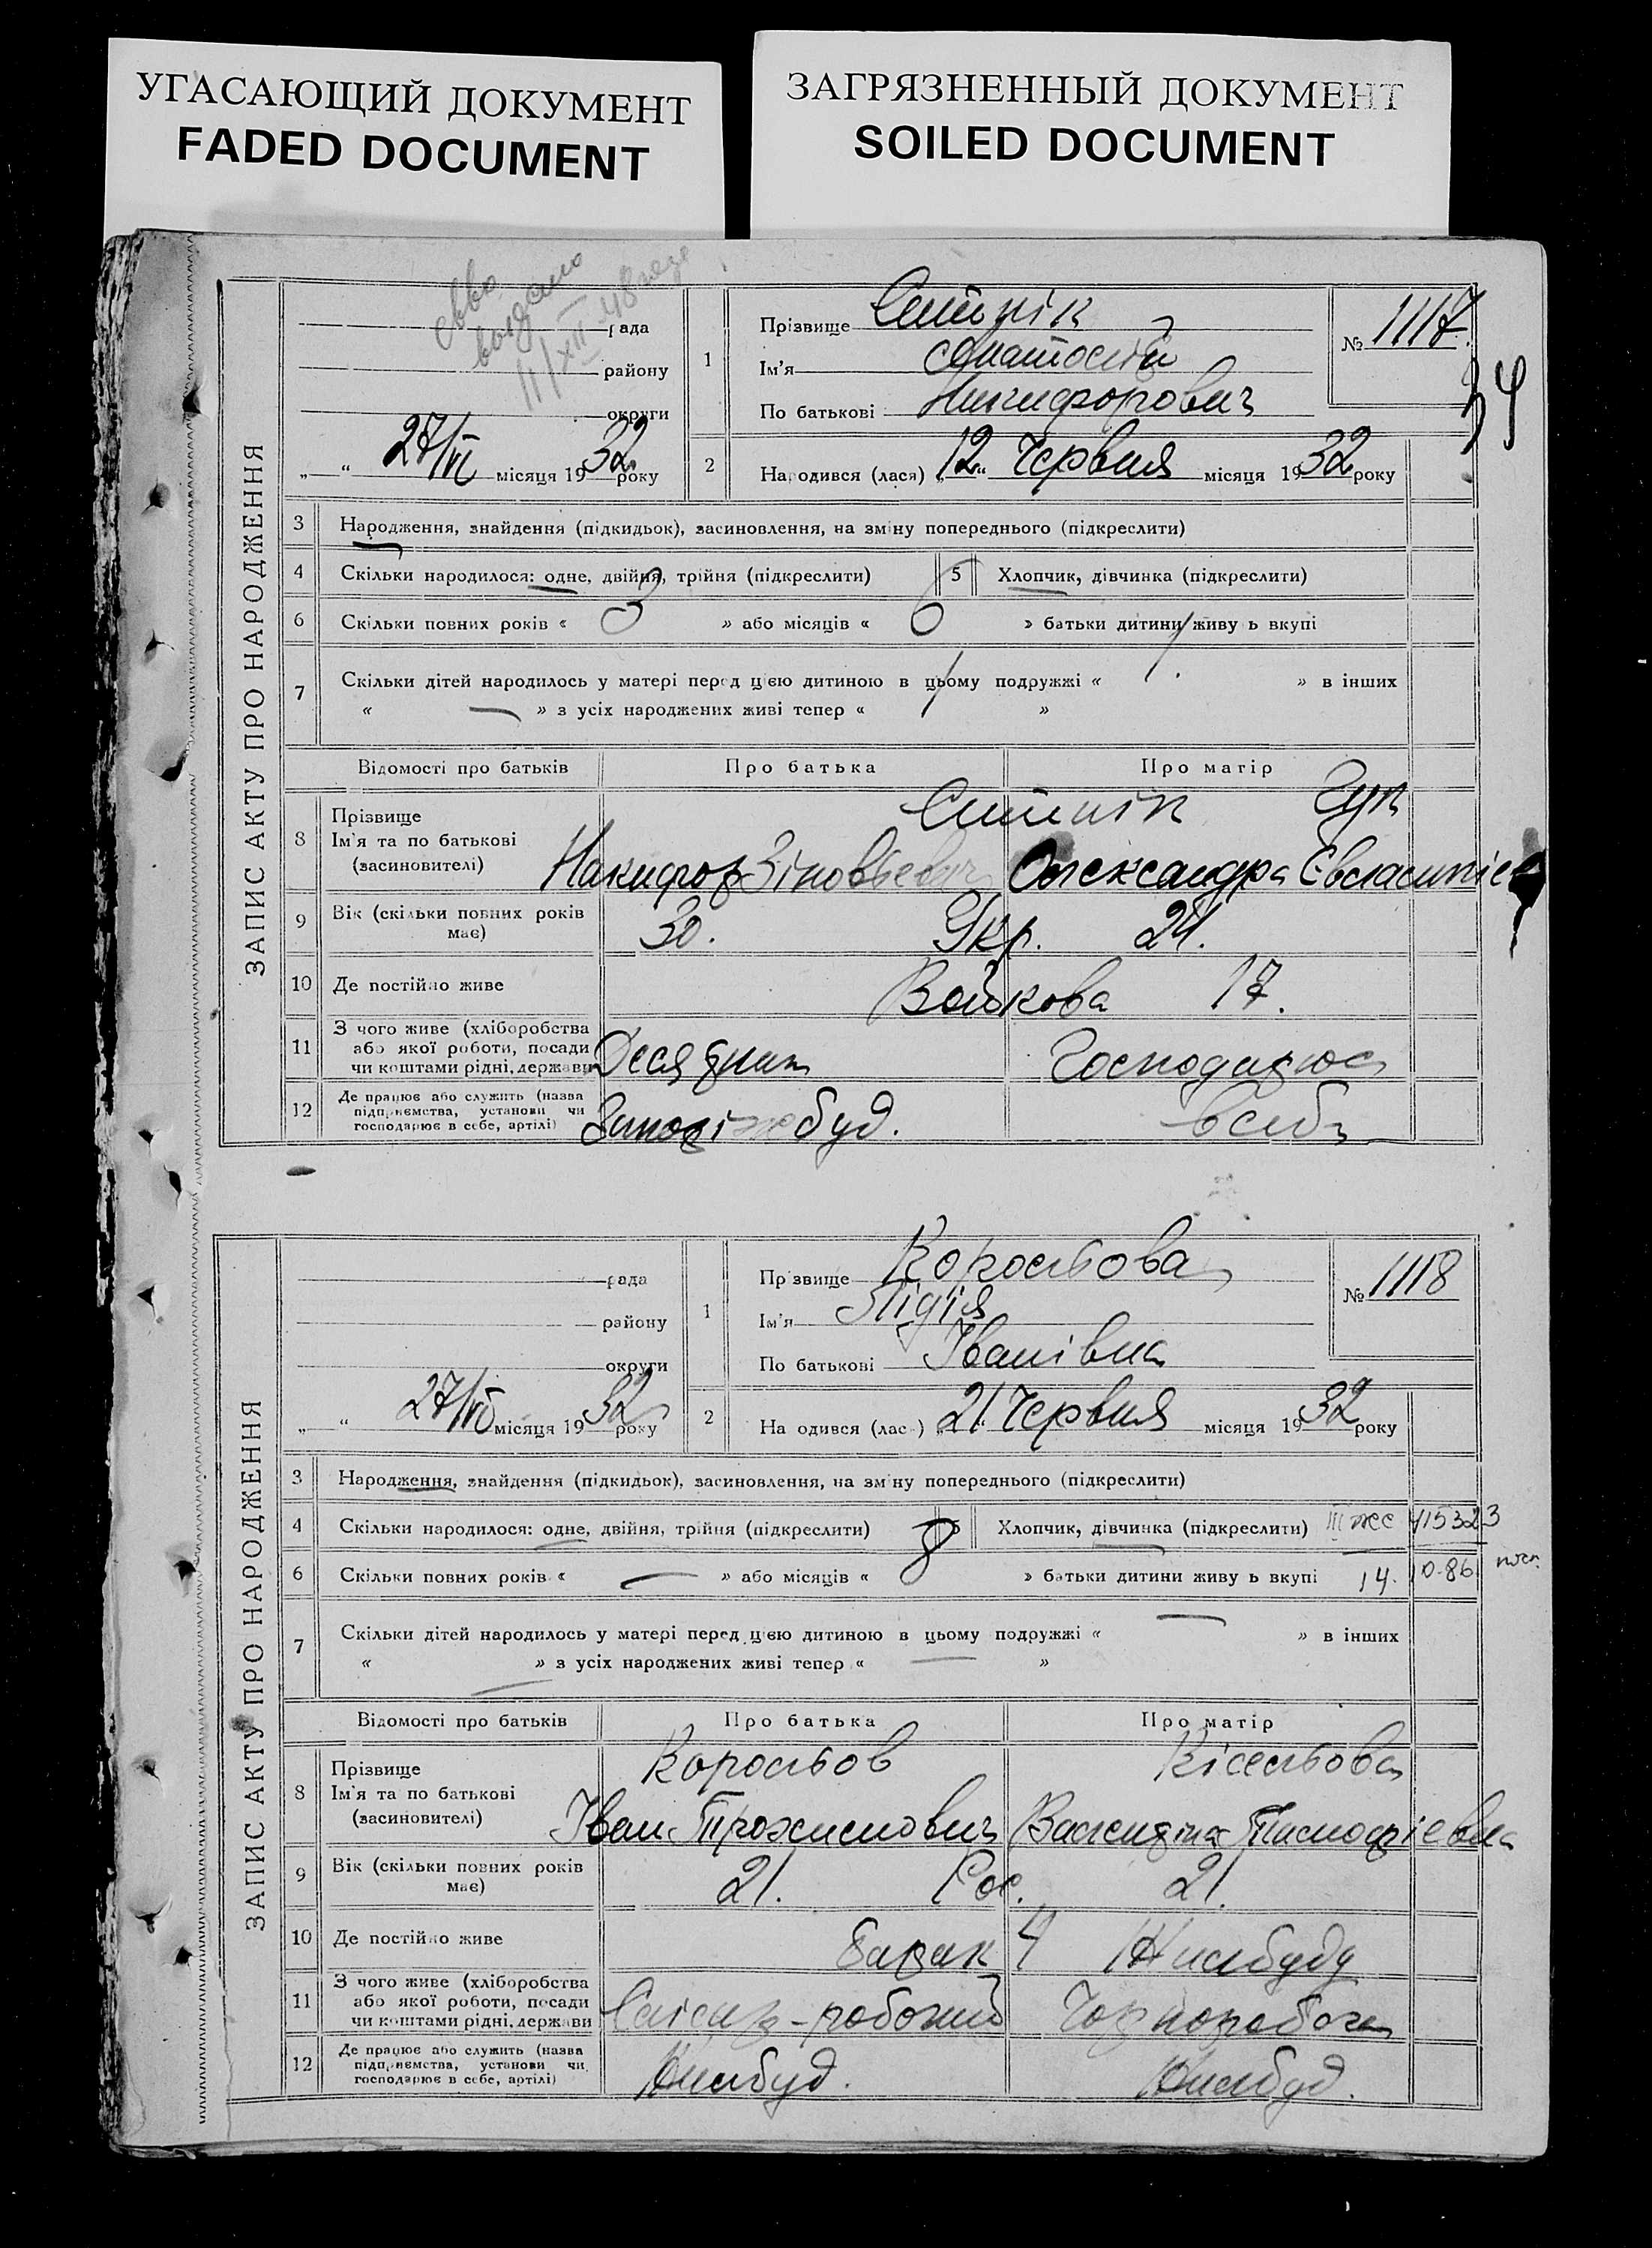 УГАСАЮЩИЙ ДОКУМЕНТ
FADED DOCUMENT
ЗАГРЯЗНЕННЫЙ ДОКУМЕНТ
SOILED DOCUMENT
ЗАПИС АКТУ ПРО НАРОДЖЕННЯ
выдано
11/XII 48
рада
району
округи
„ “ 27/VI місяця 1932 року
1
Прізвище
Ім'я Анатолій
По батькові Никифорович
№ 1117
34
2
Народився (лася) „12“ Червня місяця 1932 року
3 Народження, знайдення (підкидьок), засиновлення, на зміну попереднього (підкреслити)
4 Скільки народилося: одне, двійня, трійня (підкреслити) 5 Хлопчик, дівчинка (підкреслити)
6 Скільки повних років « 3 » або місяців « 6 » батьки дитини живуть вкупі
7 Скільки дітей народилось у матері перед цією дитиною в цьому подружжі « » в інших
« — » з усіх народжених живі тепер « »
Відомості про батьків Про батька Про матір
8 Прізвище
Ім'я та по батькові
(засиновителі)
Гук
Никифор Зіновьевич Олександра
9 Вік (скільки повних років має) 30. Укр. 24.
10 Де постійно живе Войкова 17.
11 З чого живе (хліборобства або якої роботи, посади чи коштами рідні, держави Десятник
12 Де працює або служить (назва підприємства, установи чи господарює в себе, артілі)
ЗАПИС АКТУ ПРО НАРОДЖЕННЯ
рада
району
округи
„ “ 27/VI місяця 1932 року
1
Прізвище Корольова
Ім'я Лідія
По батькові Іванівна
№ 1118
2
Народився (лася) „21“ Червня місяця 1932 року
3 Народження, знайдення (підкидьок), засиновлення, на зміну попереднього (підкреслити)
4 Скільки народилося: одне, двійня, трійня (підкреслити) 5 Хлопчик, дівчинка (підкреслити) III ЖС 415323
6 Скільки повних років « — » або місяців « 8 » батьки дитини живуть вкупі 14.10.86
7 Скільки дітей народилось у матері перед цією дитиною в цьому подружжі « — » в інших
« — » з усіх народжених живі тепер « — »
Відомості про батьків Про батька Про матір
8 Прізвище
Ім'я та по батькові
(засиновителі)
Корольов Кісельова
Іван Валентіна
9 Вік (скільки повних років має) 21. Рос. 21.
10 Де постійно живе барак 4 Житлбуду
11 З чого живе (хліборобства або якої роботи, посади чи коштами рідні, держави Слісарь-робочий Чорноробоча
12 Де працює або служить (назва підприємства, установи чи господарює в себе, артілі) Житлбуд. Житлбуд.